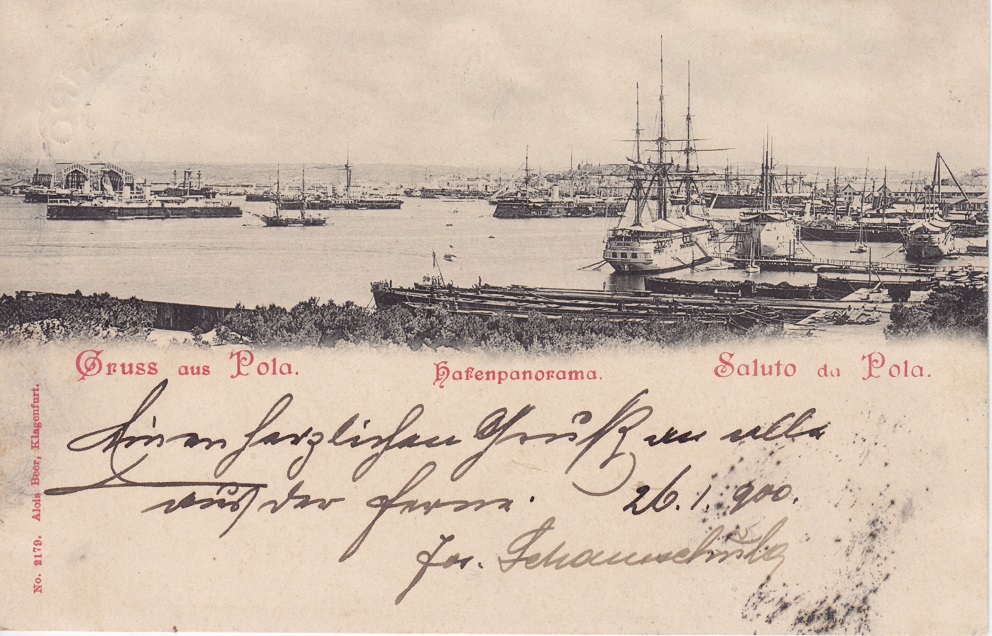 Gruss aus Pola.
Hafenpanorama.
Saluto da Pola.
Einen herzlichen Gruß an alle
aus der Ferne. 26.1.900.
Jos.
No. 2179. Alois Beer, Klagenfurt.